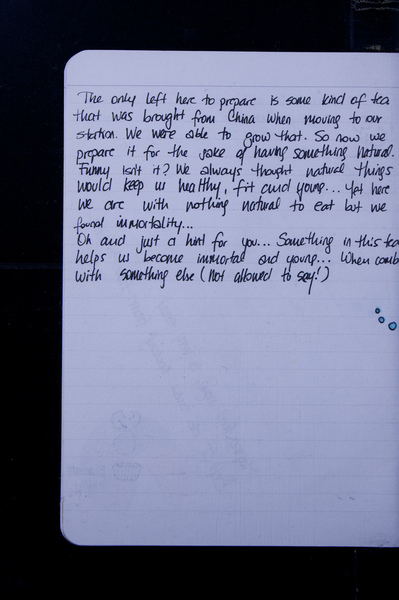 The only left here to prepare is some kind of tea
that was brought from China when moving to our
station. We were able to grow that. So now we
prepare it for the sake of having something natural.
Funny isn't it? We always thought natural things
would keep us healthy, fit and young... Yet here
we are with nothing natural to eat but we
found immortality...
Oh and just a hint for you... Something in this tea
helps us become immortal and young... When comb
with something else (Not allowed to say!)